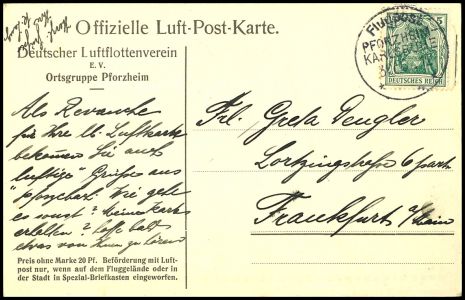 Offizielle Luft-Post-Karte.
Deutscher Luftflottenverein
E. V.
Ortsgruppe Pforzheim
FLUGPOST
PFORZHEIM
KARLSRUHE
5
DEUTSCHES REICH
Als Revanche
für Ihre lb. Luftkarte
bekommen Sie auch
"luftige" Grüße aus
Wie geht
es sonst?
erhalten? Hoffe bald
etwas von Ihnen zu hören
Frl. Greta Dengler
Lortzingstraße 6 part
Frankfurt a/Main
Preis ohne Marke 20 Pf. Beförderung mit Luft-
post nur, wenn auf dem Fluggelände oder in
der Stadt in Spezial-Briefkasten eingeworfen.